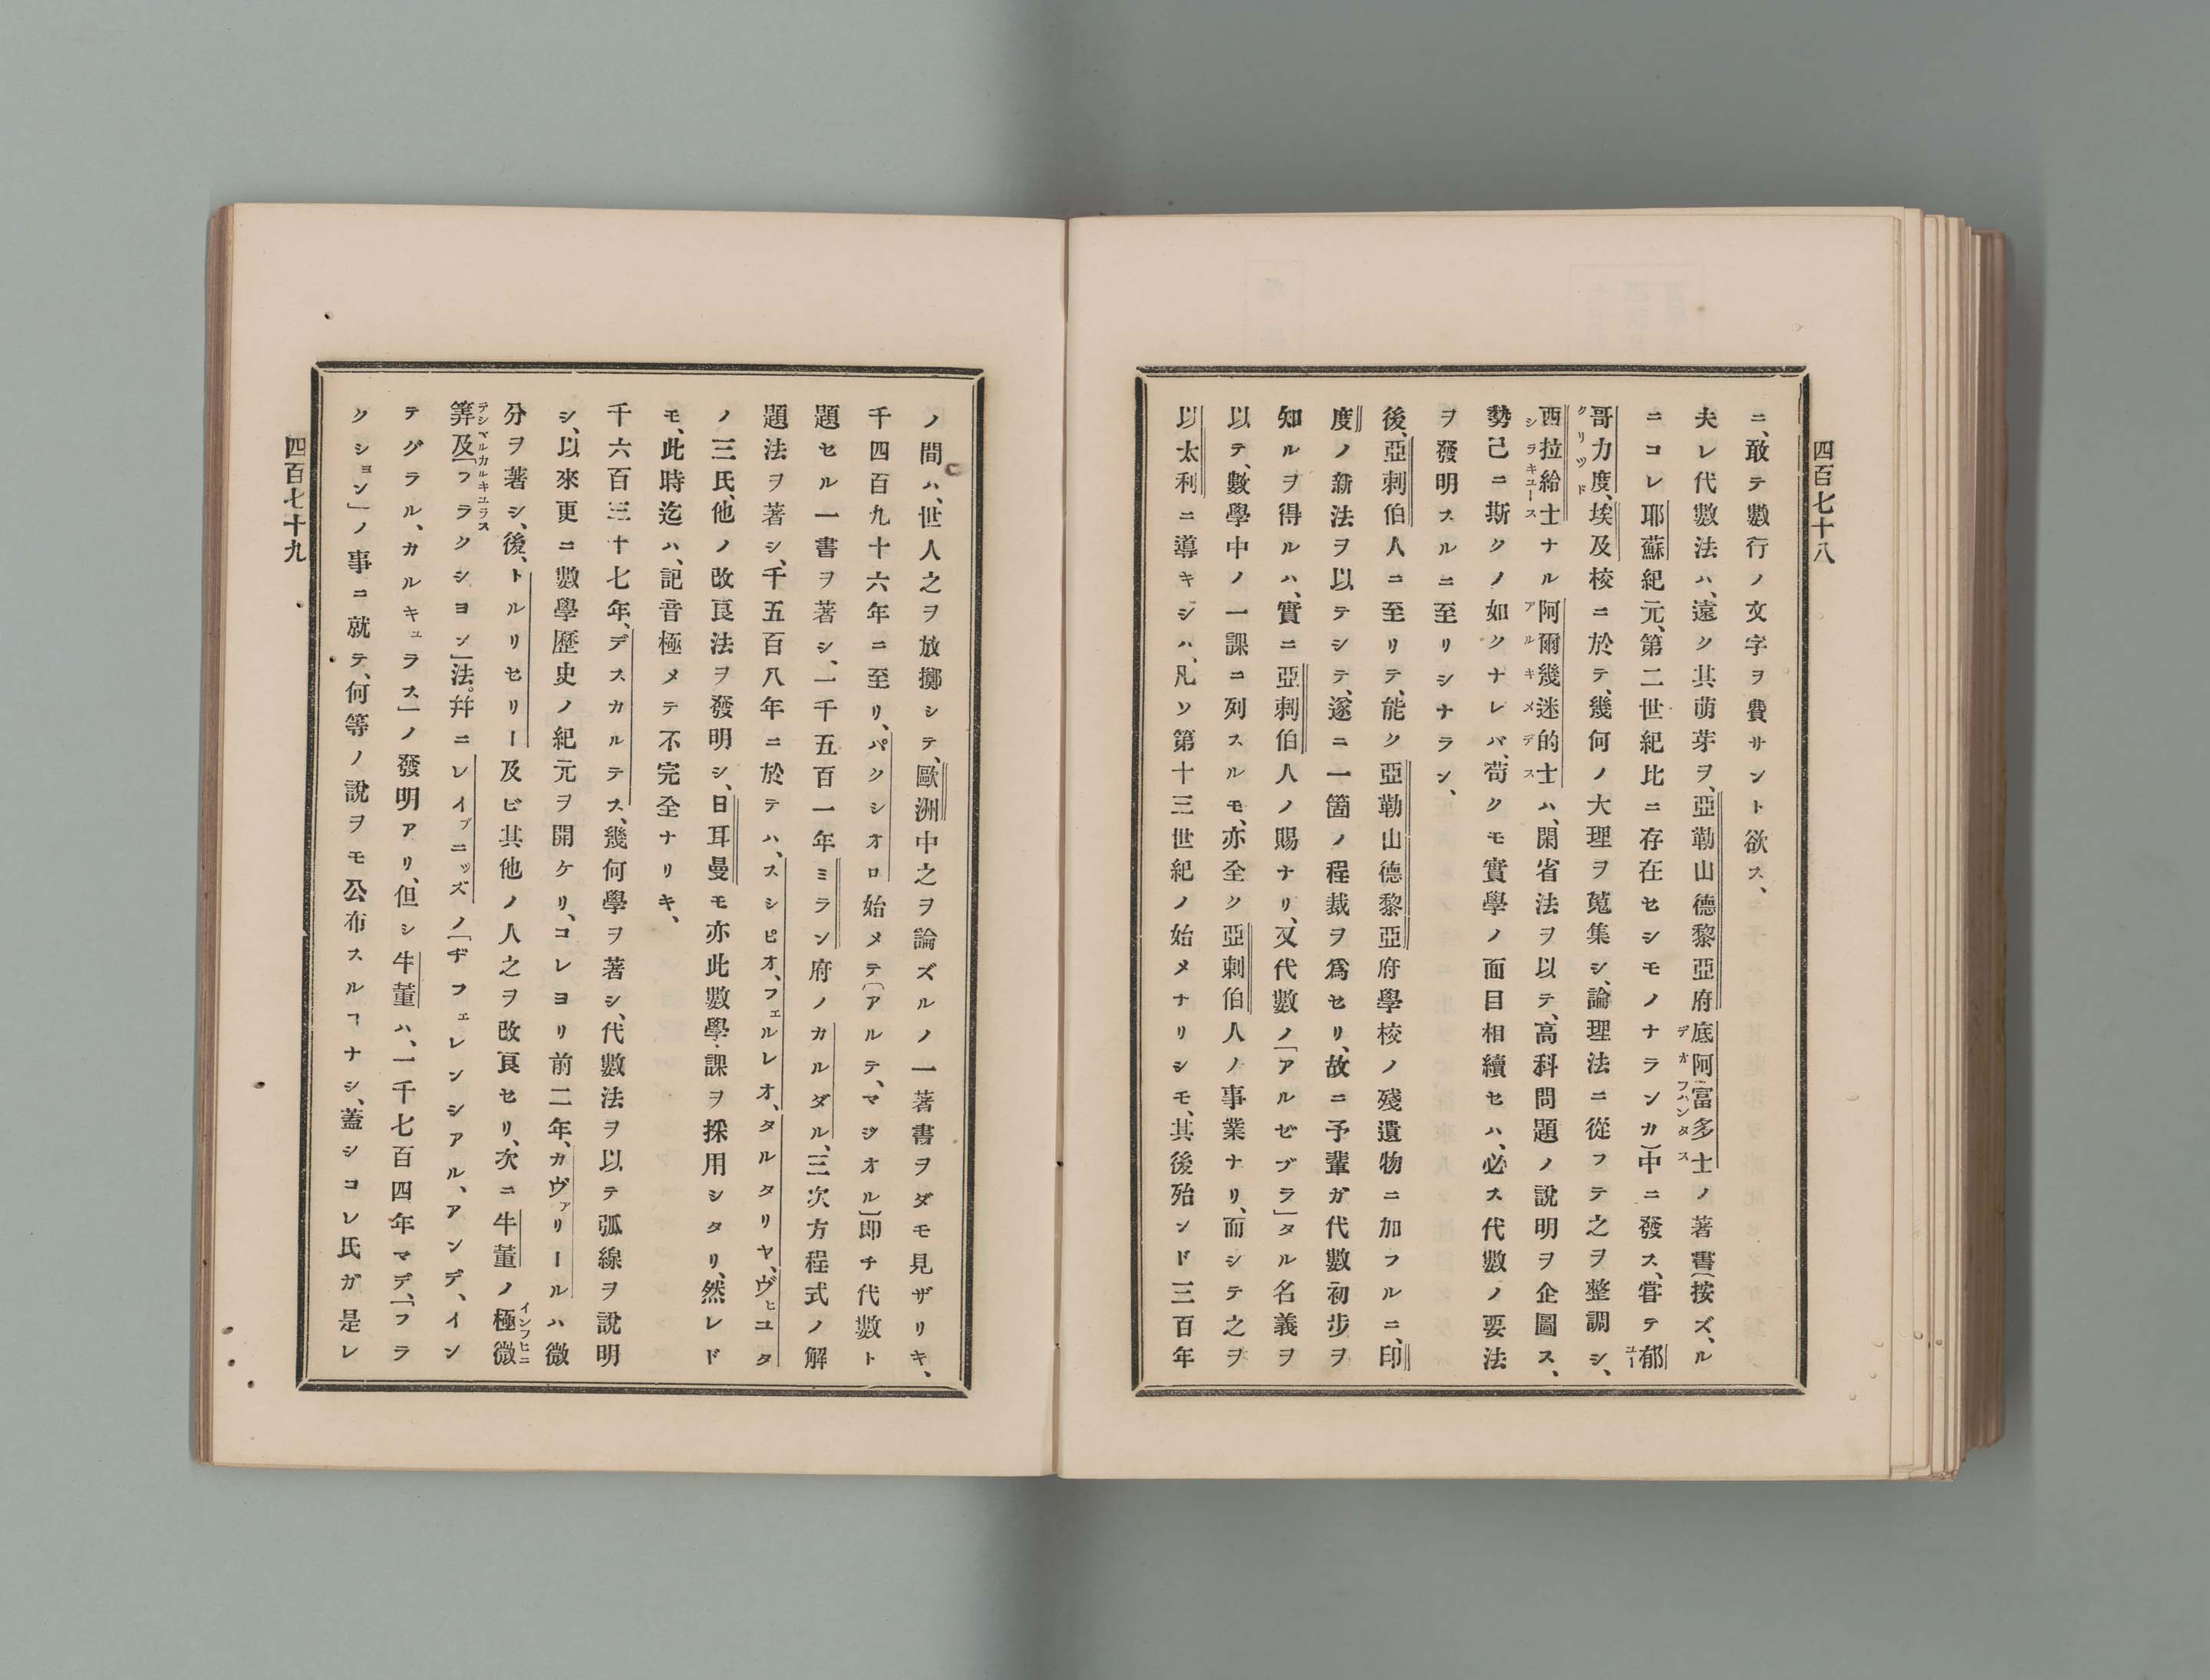 四百七十八
ニ、敢テ數行ノ文字ヲ費サント欲ス、
夫レ代數法ハ、遠ク其萌芽ヲ、亞勒山德黎亞府底阿富多士ノ著書(按ズ、ル
デオフハンタス
ニコレ耶蘇紀元、第二世紀比ニ存在セシモノナランカ)中ニ發ス、嘗テ郁
ユー
哥力度、埃及校ニ於テ、幾何ノ大理ヲ蒐集シ、論理法ニ從フテ之ヲ整調シ、
クリツド
西拉給士ナル阿爾幾迷的士ハ、閑省法ヲ以テ、高科問題ノ說明ヲ企圖ス、
シラキユース
アルキメデス
勢己ニ斯クノ如クナレバ、苟クモ實學ノ面目相續セハ、必ス代數ノ要法
ヲ發明スルニ至リシナラン、
後、亞剌伯人ニ至リテ、能ク亞勒山德黎亞府學校ノ殘遺物ニ加フルニ、印
度ノ新法ヲ以テシテ、遂ニ一箇ノ程裁ヲ爲セリ、故ニ予輩ガ代數初步ヲ
知ルヲ得ルハ、實ニ亞剌伯人ノ賜ナリ、又代數ノ「アルゼブラ」タル名義ヲ
以テ、數學中ノ一課ニ列スルモ、亦全ク亞剌伯人ノ事業ナリ、而シテ之ヲ
以太利ニ導キシハ、凡ソ第十三世紀ノ始メナリシモ、其後殆ンド三百年
ノ間ハ、世人之ヲ放擲シテ、歐洲中之ヲ論ズルノ一著書ヲダモ見ザリキ、
千四百九十六年ニ至リ、パクシオロ始メテ「アルテ、マジオル」即チ代數ト
題セル一書ヲ著シ、一千五百一年ミラン府ノカルダル、三次方程式ノ解
題法ヲ著シ、千五百八年ニ於テハ、スシピオ、フェルレオ、タルタリヤ、ヴヒユタ
ノ三氏、他ノ改良法ヲ發明シ、日耳曼モ亦此數學課ヲ採用シタリ、然レド
モ、此時迄ハ、記音極メテ不完全ナリキ、
千六百三十七年、デスカルテス、幾何學ヲ著シ、代數法ヲ以テ弧線ヲ說明
シ、以來更ニ數學歷史ノ紀元ヲ開ケリ、コレヨリ前二年、カヴァリールハ微
分ヲ著シ、後、トルリセリー及ビ其他ノ人之ヲ改良セリ、次ニ牛董ノ極微
インフヒニ
筭及「フラクシヨン」法。幷ニレイブニッズノ「ヂフェレンシアル、アンデ、イン
テシマルカルキユラス
テグラル、カルキュラス」ノ發明アリ、但シ牛董ハ、一千七百四年マデ、「フラ
クション」ノ事ニ就テ、何等ノ說ヲモ公布スルヿナシ、蓋シコレ氏ガ是レ
四百七十九